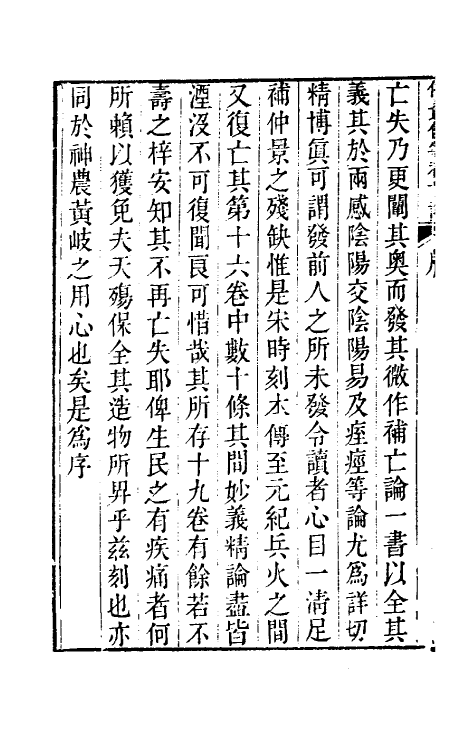 亡失乃更闡其奧而發其微作補亡論一書以全其
義其於兩感陰陽交陰陽易及痓痙等論尤爲詳切
精博眞可謂發前人之所未發令讀者心目一淸足
補仲景之殘缺惟是宋時刻本傳至元紀兵火之間
又復亡其第十六卷中數十條其間妙義精論盡皆
湮沒不可復聞良可惜哉其所存十九卷有餘若不
壽之梓安知其不再亡失耶俾生民之有疾痛者何
所賴以獲免夫夭殤保全其造物所昇乎兹刻也亦
同於神農黃岐之用心也矣是爲序